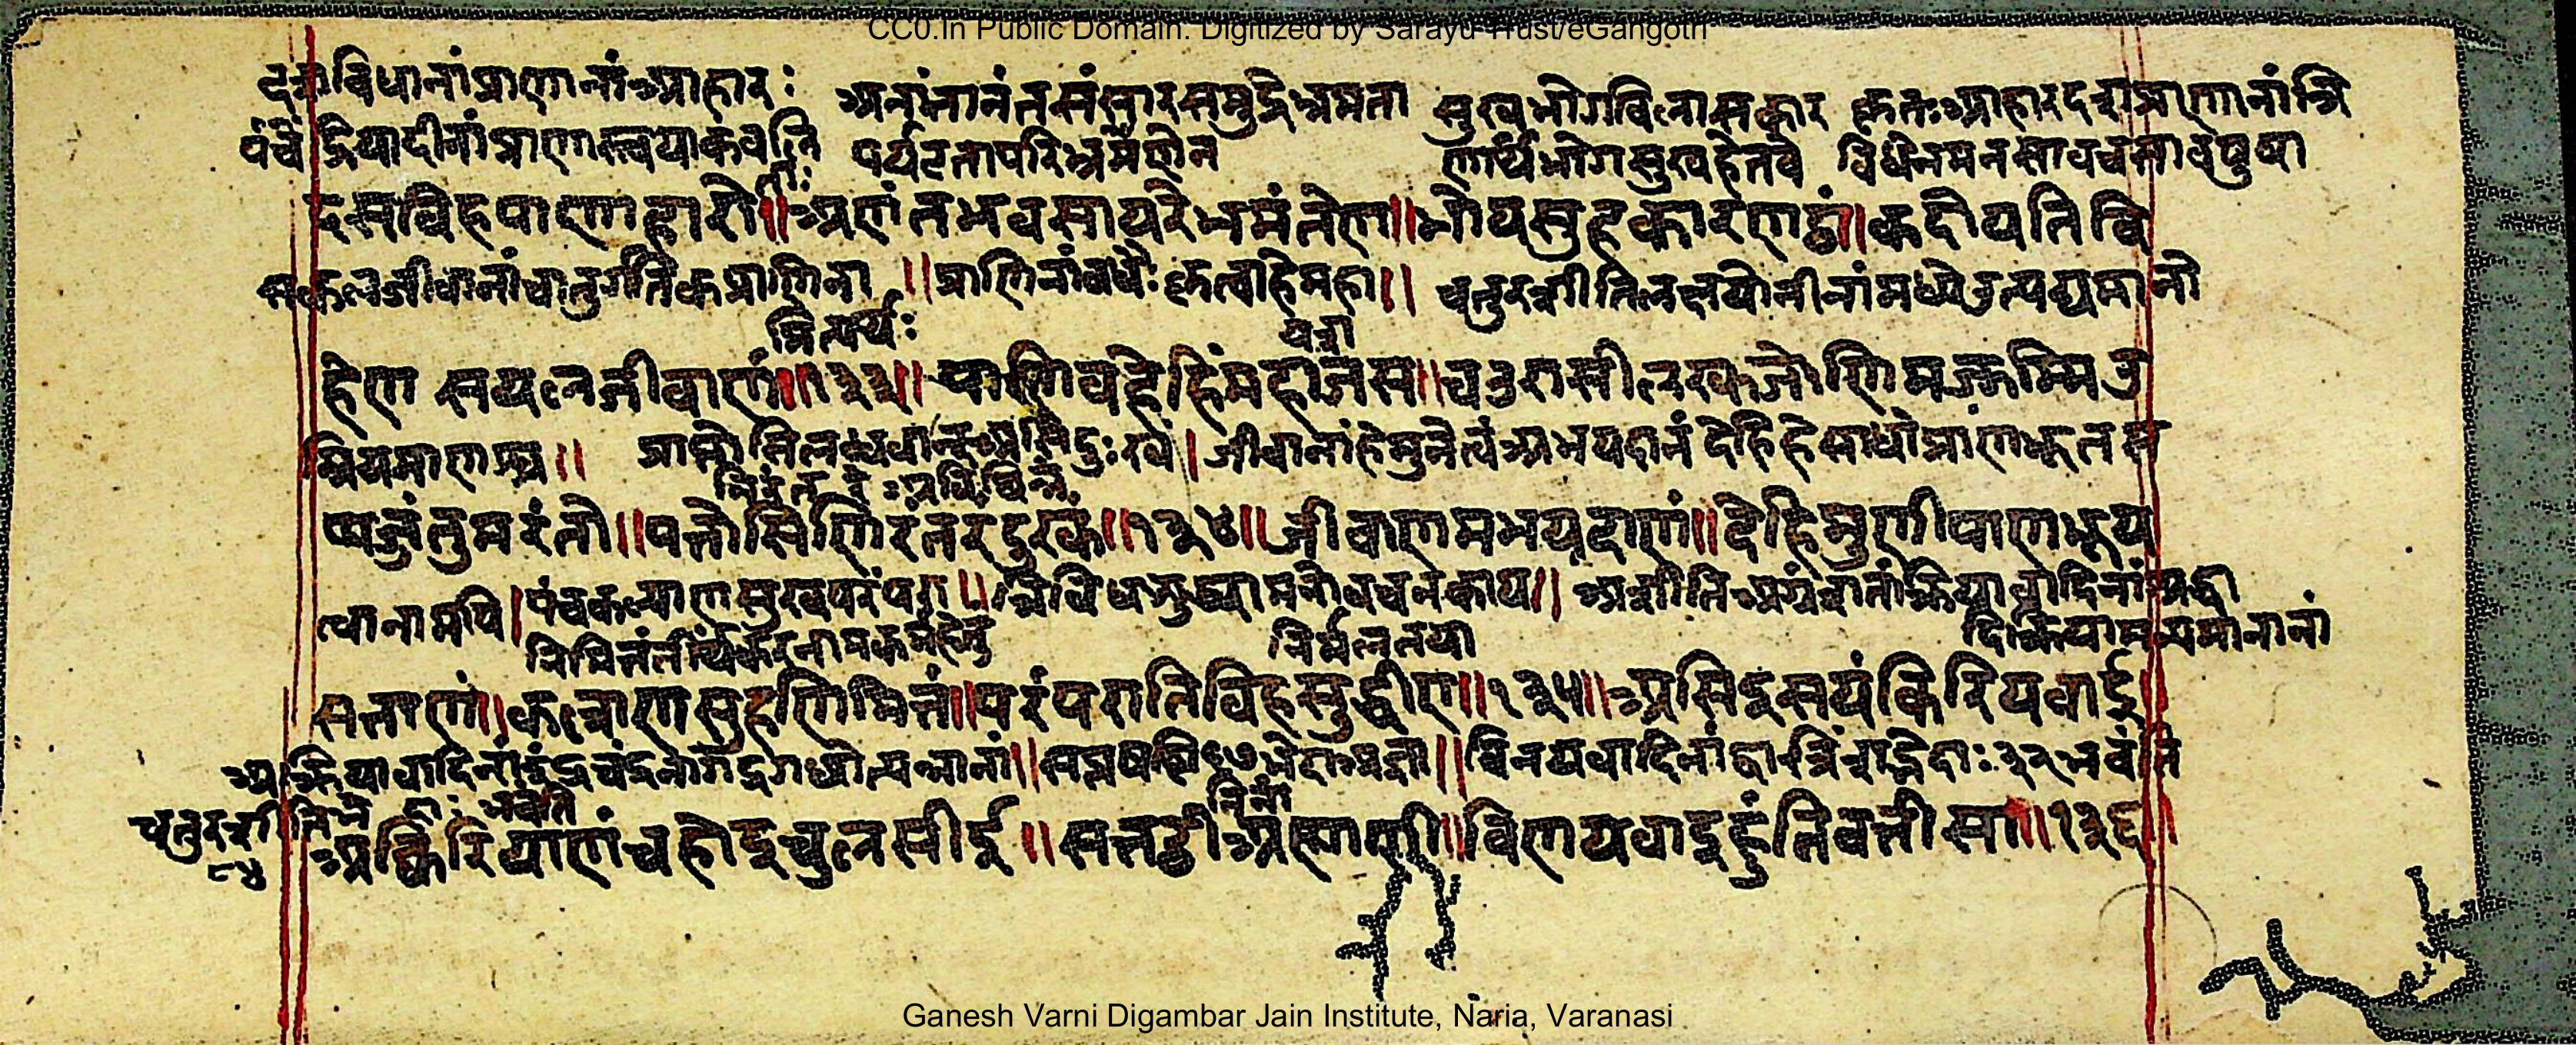 CC0.In Public Domain. Digitized by Sarayu Trust/eGangotri
दशविधानां प्राणानां आहारः अनंतानंतसंसारसमुद्रे भ्रमता सुखभोगविलासकार कृतः आहार दशप्राणानां त्रि
पंचेंद्रियादीनां प्राणास्त्वया कवलि पर्यटनापरिभ्रमणेन णार्थं भोगसुखहेतवे विधेन मनसा वचसा वपुषा
ताः
दसविहपाणाहारो॥अणंतभवसायरे भमंतेण॥भोयसुहकारणट्ठं।कदो य तिवि
सकलजीवानां चातुर्गतिकप्राणिना ॥प्राणिनां वधैः कृत्वा हे महा॥ चतुरशीतिलक्षयोनीनां मध्ये उत्पद्यमानो
मित्यर्थः यश
हेण सयलजीवाणं॥१३३॥पाणिवहेहिं महाजस॥चउरासीलक्खजोणिमज्झम्मि उ
म्रियमाणश्च॥ प्राप्तोसि लब्धवान् असि दुःखं।जीवानां हे मुने त्वं अभयदानं देहि हे साधो प्राणभूतस
निरंतरं अविछिन्नं
प्पजंतुमरंतो॥पत्तोसि णिरंतर दुक्खं॥१३४॥जीवाणमभयदाणं॥देहि मुणी पाणभूय
त्वानामपि।पंचकल्याणसुखपरंपरा॥त्रिविधशुद्ध्या मनोवचनकाय॥ अशीतिअग्रंशतां क्रियावादिनां श्रद्धा
निमित्तं तीर्थंकरनामकर्महेतु निर्मलतया दिक्रियामन्यमानानां
सत्ताणं॥कल्लाणसुहणिमित्तं॥परंपरा तिविहसुद्धीए॥१३५॥असिदिसयं किरियवाई॥
अक्रियावादिनां इंद्रचंद्रनागेंद्रगच्छोत्पन्नानां॥सप्तषष्टि ६७ भेदा अज्ञा॥विनयवादिनां द्वात्रिंशद्भेदाः ३२ भवंति
चतुरशीतिभेदाः भवंति निनां
८४ अक्किरियाणं च होइ चुलसीई॥सत्तट्ठी अण्णाणी॥विणयवाई हुंति बत्तीसा॥१३६॥
Ganesh Varni Digambar Jain Institute, Naria, Varanasi